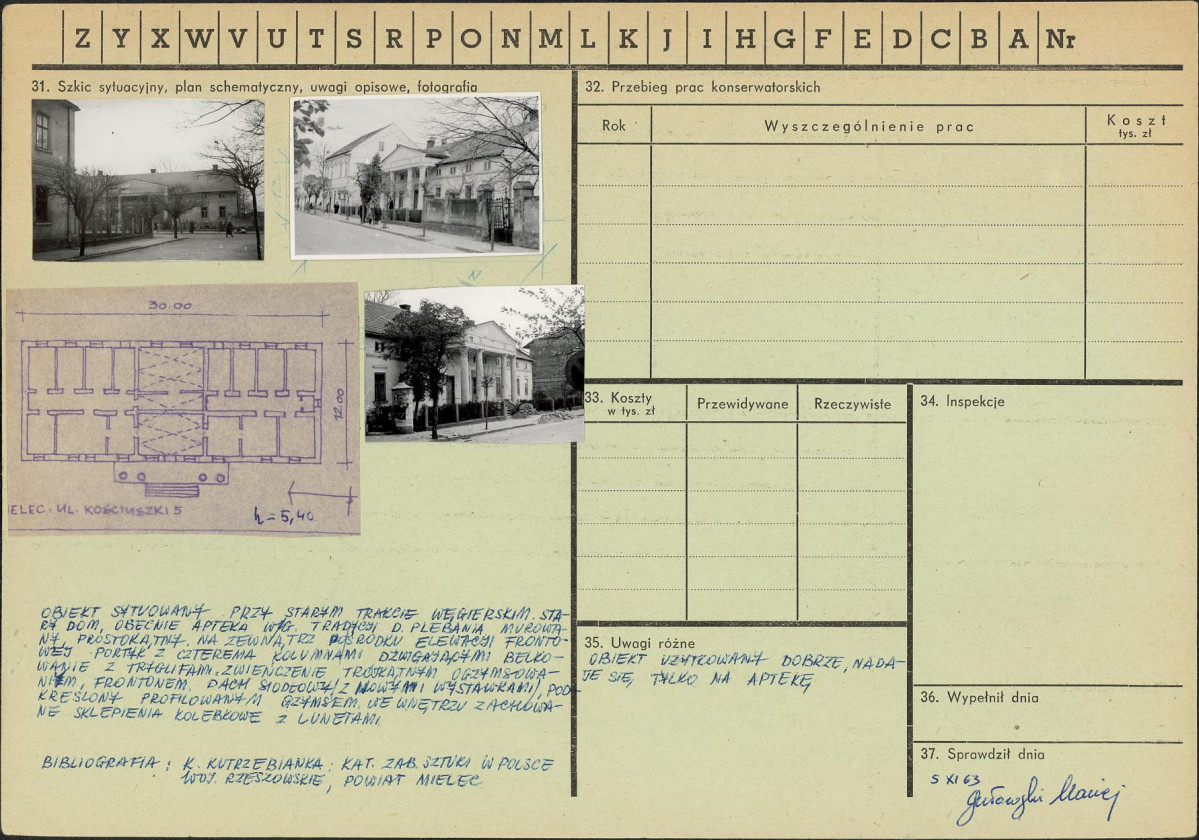 Z Y X W V U T S R P O N M L K J I H G F E D C B A Nr
31. Szkic sytuacyjny, plan schematyczny, uwagi opisowe, fotografia
30.00
12.00
ELEC. UL. KOŚCIUSZKI 5
h = 5,40
OBIEKT SYTUOWANY PRZY STARYM TRAKCIE WĘGIERSKIM. STA-
RY DOM, OBECNIE APTEKA WG. TRADYCJI D. PLEBANIA MUROWA-
NY, PROSTOKĄTNY. NA ZEWNĄTRZ POŚRODKU ELEWACJI FRONTO-
WEJ PORTYK Z CZTEREMA KOLUMNAMI DŹWIGAJĄCYMI BELKO-
WANIE Z TRYGLIFAMI. ZWIEŃCZENIE TRÓJKĄTNYM OGZYMSOWA-
NIEM, FRONTONEM. DACH SIODŁOWY/Z NOWYMI WYSTAWKAMI/, POD-
KREŚLONY PROFILOWANYM GZYMSEM. WE WNĘTRZU ZACHOWA-
NE SKLEPIENIA KOLEBKOWE Z LUNETAMI.
BIBLIOGRAFIA: K. KUTRZEBIANKA: KAT. ZAB. SZTUKI W POLSCE
WOJ. RZESZOWSKIE, POWIAT MIELEC
32. Przebieg prac konserwatorskich
Rok
Wyszczególnienie prac
Koszt
tys. zł
33. Koszty
w tys. zł
Przewidywane
Rzeczywiste
34. Inspekcje
35. Uwagi różne
OBIEKT UŻYTKOWANY DOBRZE, NADA-
JE SIĘ TYLKO NA APTEKĘ
36. Wypełnił dnia
37. Sprawdził dnia
5 XI 63
Maciej